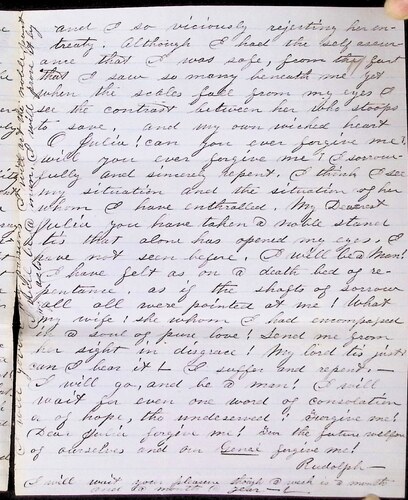 and I so viciously rejecting her en-
treaty. Although I had the self assur-
ance that I was safe, from the fact
that I saw so many beneath me yet
when the scales fall from my eyes I
see the contrast between her who stoops
to save, and my own wicked heart
O Julia! can you ever forgive me!
will you ever forgive me! I sorrow-
fully and sincerely repent. I think I see
my situation and the situation of her
whom I have enthralled. My Dearest
Julia you have taken a noble stand
tis that alone has opened my eyes. I
have not seen before. I will be a Man!
I have felt as on a death bed of re-
pentance, as if the shafts of sorrow
all all were pointed at me! What
my wife! she whom I had encompassed
in a soul of pure love! Send me from
her sight in disgrace! My lord tis just
can I bear it - I suffer and repent. -
I will go, and be a man! I will
wait for even one word of consolation
of hope, tho undeserved! Forgive me!
Dear Julia forgive me! For the future welfare
of ourselves and our Genie forgive me!
Rudolph -
I will wait your pleasure though a week is a month
and a month a year -